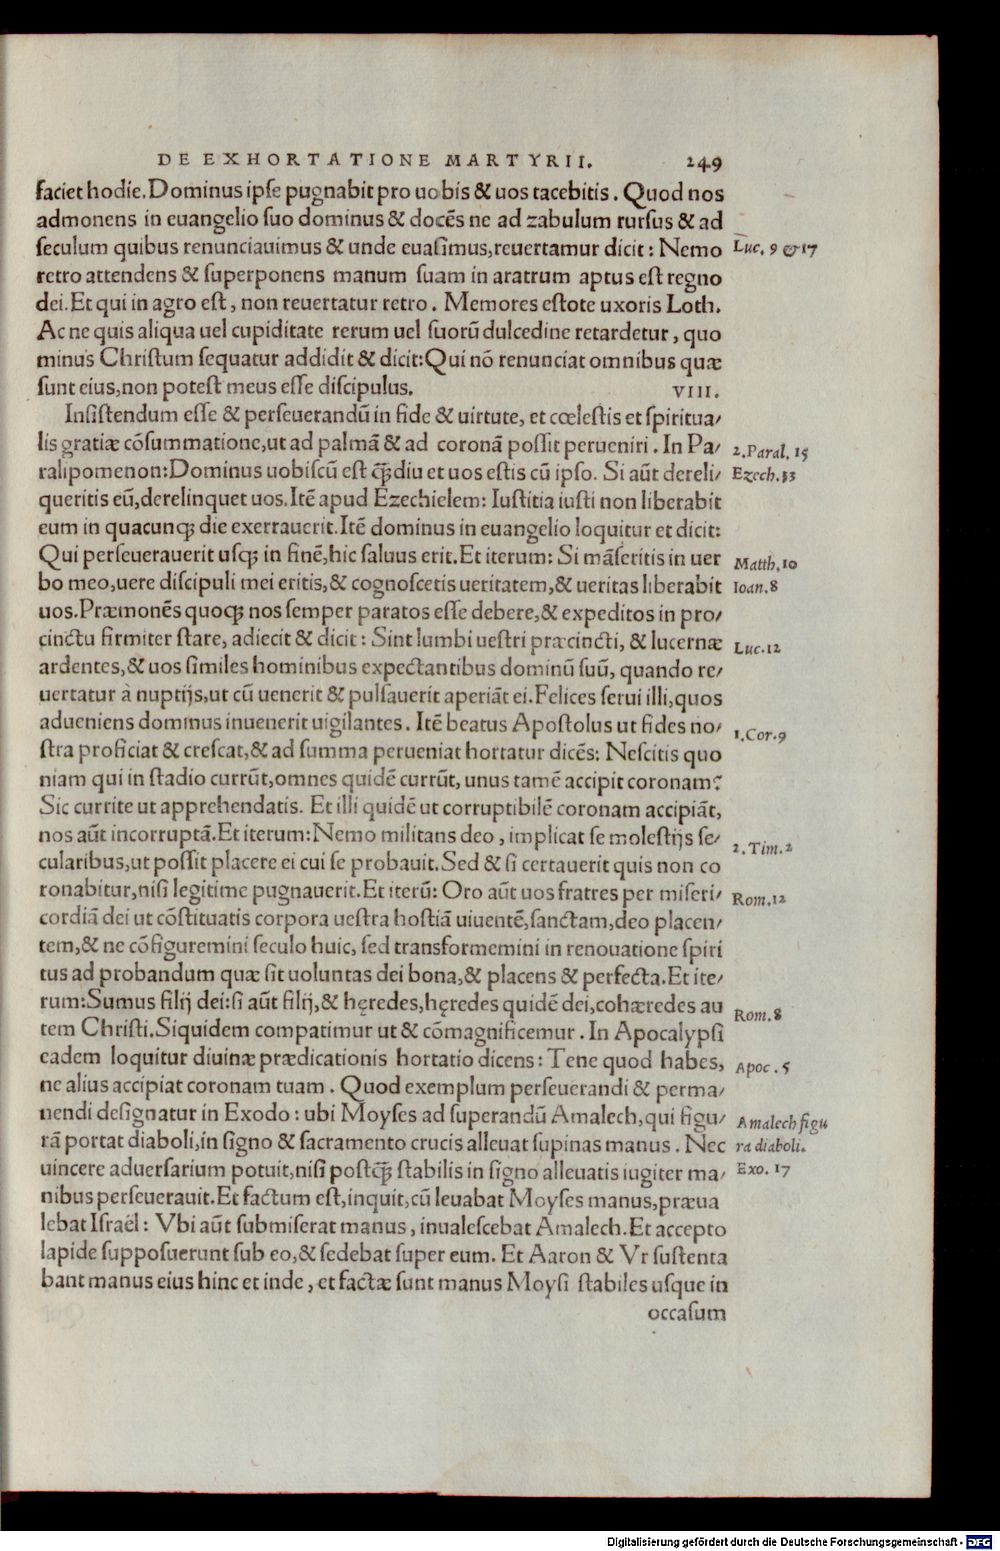 DE EXHORTATIONE MARTYRII. 249
faciet hodie. Dominus ipſe pugnabit pro uobis & uos tacebitis. Quod nos
admonens in euangelio ſuo dominus & docẽs ne ad zabulum rurſus & ad
ſeculum quibus renunciauimus & unde euaſimus, reuertamur dicit: Nemo
Luc. 9 & 17
retro attendens & ſuperponens manum ſuam in aratrum aptus eſt regno
dei. Et qui in agro eſt, non reuertatur retro. Memores eſtote uxoris Loth.
Ac ne quis aliqua uel cupiditate rerum uel ſuorũ dulcedine retardetur, quo
minus Chriſtum ſequatur addidit & dicit: Qui nõ renunciat omnibus quæ
ſunt eius, non poteſt meus eſſe diſcipulus. VIII.
Inſiſtendum eſſe & perſeuerandũ in fide & uirtute, et cœleſtis et ſpiritua/
lis gratiæ cõſummatione, ut ad palmã & ad coronã poſſit perueniri. In Pa/
2. Paral. 15
ralipomenon: Dominus uobiſcũ eſt q̃diu et uos eſtis cũ ipſo. Si aũt dereli/
Ezech. 33
queritis eũ, derelinquet uos. Itẽ apud Ezechielem: Iuſtitia iuſti non liberabit
eum in quacunq; die exerrauerit. Itẽ dominus in euangelio loquitur et dicit:
Qui perſeuerauerit uſq; in finẽ, hic ſaluus erit. Et iterum: Si mãſeritis in uer
Matth. 10
bo meo, uere diſcipuli mei eritis, & cognoſcetis ueritatem, & ueritas liberabit
Ioan. 8
uos. Præmonẽs quoq; nos ſemper paratos eſſe debere, & expeditos in pro/
cinctu firmiter ſtare, adiecit & dicit: Sint lumbi ueſtri præcincti, & lucernæ
Luc. 12
ardentes, & uos ſimiles hominibus expectantibus dominũ ſuũ, quando re/
uertatur à nuptijs, ut cũ uenerit & pulſauerit aperiãt ei. Felices ſerui illi, quos
adueniens dominus inuenerit uigilantes. Itẽ beatus Apoſtolus ut fides no/
1. Cor. 9
ſtra proficiat & creſcat, & ad ſumma perueniat hortatur dicẽs: Neſcitis quo
niam qui in ſtadio currũt, omnes quidẽ currũt, unus tamẽ accipit coronam?
Sic currite ut apprehendatis. Et illi quidẽ ut corruptibilẽ coronam accipiãt,
nos aũt incorruptã. Et iterum: Nemo militans deo, implicat ſe moleſtijs ſe/
2. Tim. 2
cularibus, ut poſſit placere ei cui ſe probauit. Sed & ſi certauerit quis non co
ronabitur, niſi legitime pugnauerit. Et iterũ: Oro aũt uos fratres per miſeri/
Rom. 12
cordiã dei ut cõſtituatis corpora ueſtra hoſtiã uiuentẽ, ſanctam, deo placen/
tem, & ne cõfiguremini ſeculo huic, ſed transformemini in renouatione ſpiri
tus ad probandum quæ ſit uoluntas dei bona, & placens & perfecta. Et ite/
rum: Sumus filij dei: ſi aũt filij, & hęredes, hęredes quidẽ dei, cohæredes au
Rom. 8
tem Chriſti. Siquidem compatimur ut & cõmagnificemur. In Apocalypſi
eadem loquitur diuinæ prædicationis hortatio dicens: Tene quod habes,
Apoc. 5
ne alius accipiat coronam tuam. Quod exemplum perſeuerandi & perma/
nendi deſignatur in Exodo: ubi Moyſes ad ſuperandũ Amalech, qui figu/
Amalech figu
rã portat diaboli, in ſigno & ſacramento crucis alleuat ſupinas manus. Nec
ra diaboli.
uincere aduerſarium potuit, niſi poſtq̃ ſtabilis in ſigno alleuatis iugiter ma/
Exo. 17
nibus perſeuerauit. Et factum eſt, inquit, cũ leuabat Moyſes manus, præua
lebat Iſraël: Vbi aũt ſubmiſerat manus, inualeſcebat Amalech. Et accepto
lapide ſuppoſuerunt ſub eo, & ſedebat ſuper eum. Et Aaron & Vr ſuſtenta
bant manus eius hinc et inde, et factæ ſunt manus Moyſi ſtabiles uſque in
occaſum
Digitalisierung gefördert durch die Deutsche Forschungsgemeinschaft - DFG